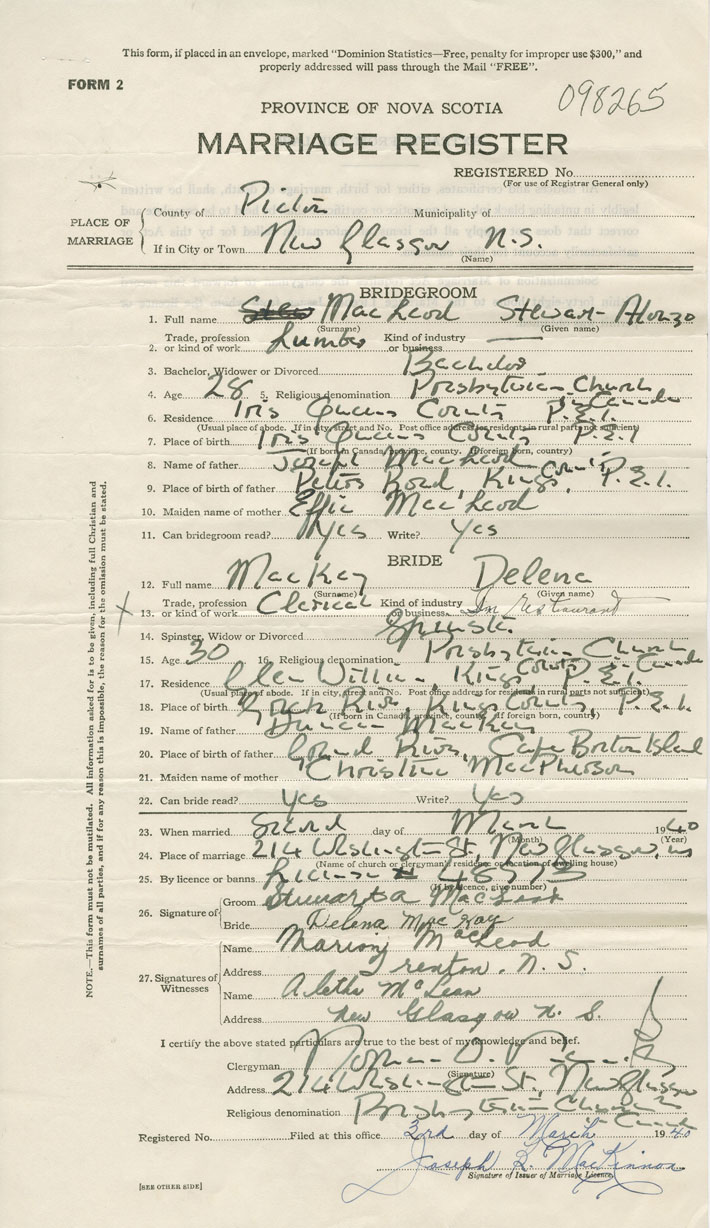 This form, if placed in an envelope, marked "Dominion Statistics—Free, penalty for improper use $300," and
properly addressed will pass through the Mail "FREE".
FORM 2
098265
PROVINCE OF NOVA SCOTIA
MARRIAGE REGISTER
REGISTERED No.
(For use of Registrar General only)
PLACE OF MARRIAGE
County of Pictou Municipality of
If in City or Town New Glasgow N.S.
(Name)
BRIDEGROOM
1. Full name MacLeod Stewart Alonzo
(Surname) (Given name)
2. Trade, profession or kind of work Lumber Kind of industry or business —
3. Bachelor, Widower or Divorced Bachelor
4. Age 28 5. Religious denomination Presbyterian Church in Canada
6. Residence Iris Queens County P.E.I.
(Usual place of abode. If in city, street and No. Post office address for residents in rural parts not sufficient)
7. Place of birth Iris Queens County P.E.I
(If born in Canada, province, county. If foreign born, country)
8. Name of father Joseph MacLeod
9. Place of birth of father Peters Road, Kings County, P.E.I.
10. Maiden name of mother Effie MacLeod
11. Can bridegroom read? Yes Write? Yes
BRIDE
12. Full name MacKay Delena
(Surname) (Given name)
13. Trade, profession or kind of work Clerical Kind of industry or business In restaurant
14. Spinster, Widow or Divorced Spinster
15. Age 30 16. Religious denomination Presbyterian Church in Canada
17. Residence Glen William, Kings County P.E.I.
(Usual place of abode. If in city, street and No. Post office address for residents in rural parts not sufficient)
18. Place of birth River, Kings County, P.E.I.
(If born in Canada, province, county. If foreign born, country)
19. Name of father Duncan MacKay
20. Place of birth of father Grand River, Cape Breton Island
21. Maiden name of mother Christine MacPherson
22. Can bride read? Yes Write? Yes
23. When married Second day of March 1940
(Month) (Year)
24. Place of marriage 214 Washington St, New Glasgow, NS
(Name of church or clergyman's residence or location of dwelling house)
25. By licence or banns License #
(If by licence, give number)
26. Signature of
Groom Stewart A MacLeod
Bride Delena MacKay
27. Signatures of Witnesses
Name Marion MacLeod
Address Trenton, N. S.
Name Aletha McLean
Address New Glasgow N. S.
I certify the above stated particulars are true to the best of my knowledge and belief.
Clergyman Norman D.
(Signature)
Address 214 Washington St, New Glasgow
Religious denomination Presbyterian Church in Canada
Registered No. Filed at this office 3rd day of March 1940
Joseph MacKinnon
Signature of Issuer of Marriage Licence.
[SEE OTHER SIDE]
NOTE.—This form must not be mutilated. All information asked for is to be given, including full Christian and
surnames of all parties, and if for any reason this is impossible, the reason for the omission must be stated.